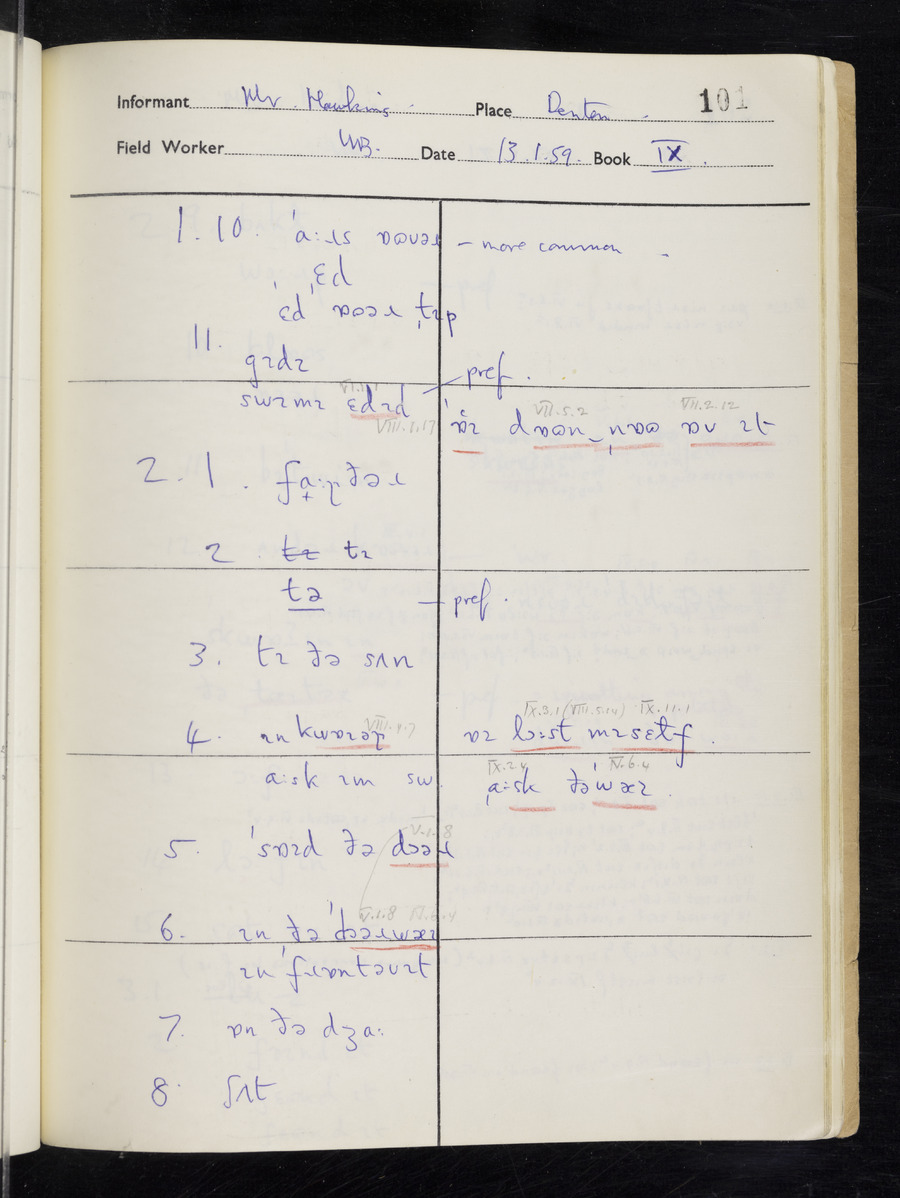 Informant Mr. Hawkins. Place Denton. 101
Field Worker WB. Date 13.1.59. Book IX.
1. 10. ˈɑːɪs ɒʊvəɹ — more common
ˌɛd
ˈɛdˌ ɒʊəɹ tɪp
11. gɪdɪ
— pref.
VI.1.1
swɪmɪ ɛdɪd
VIII.1.17
VII.5.2 VII.2.12
dɒʊn nɒʊ ɒv ɪt
2. 1. fɑːðəɹ
2. tɪ tɪ
tə — pref.
3. tɪ ðə sʌn
VIII.4.7 IX.3.1 (VIII.5.14) IX.11.1
4. ɪn kwɒɪəɹ ɒɪ lɔːst mɪsɛɫf.
IX.2.4 IV.6.4
ɑːsk ɪm sw. ɑːsk ðəˈwæɪ
V.1.8
5. ˈspɒɪd ðə dɔəɹ
V.1.8 IV.6.4
6. ɪn ðə ˈdɔəɹwæɪ
ɪn ˈfɹɒntəvɪt
7. ɒn ðə dʒɑː
8. ʃʌt